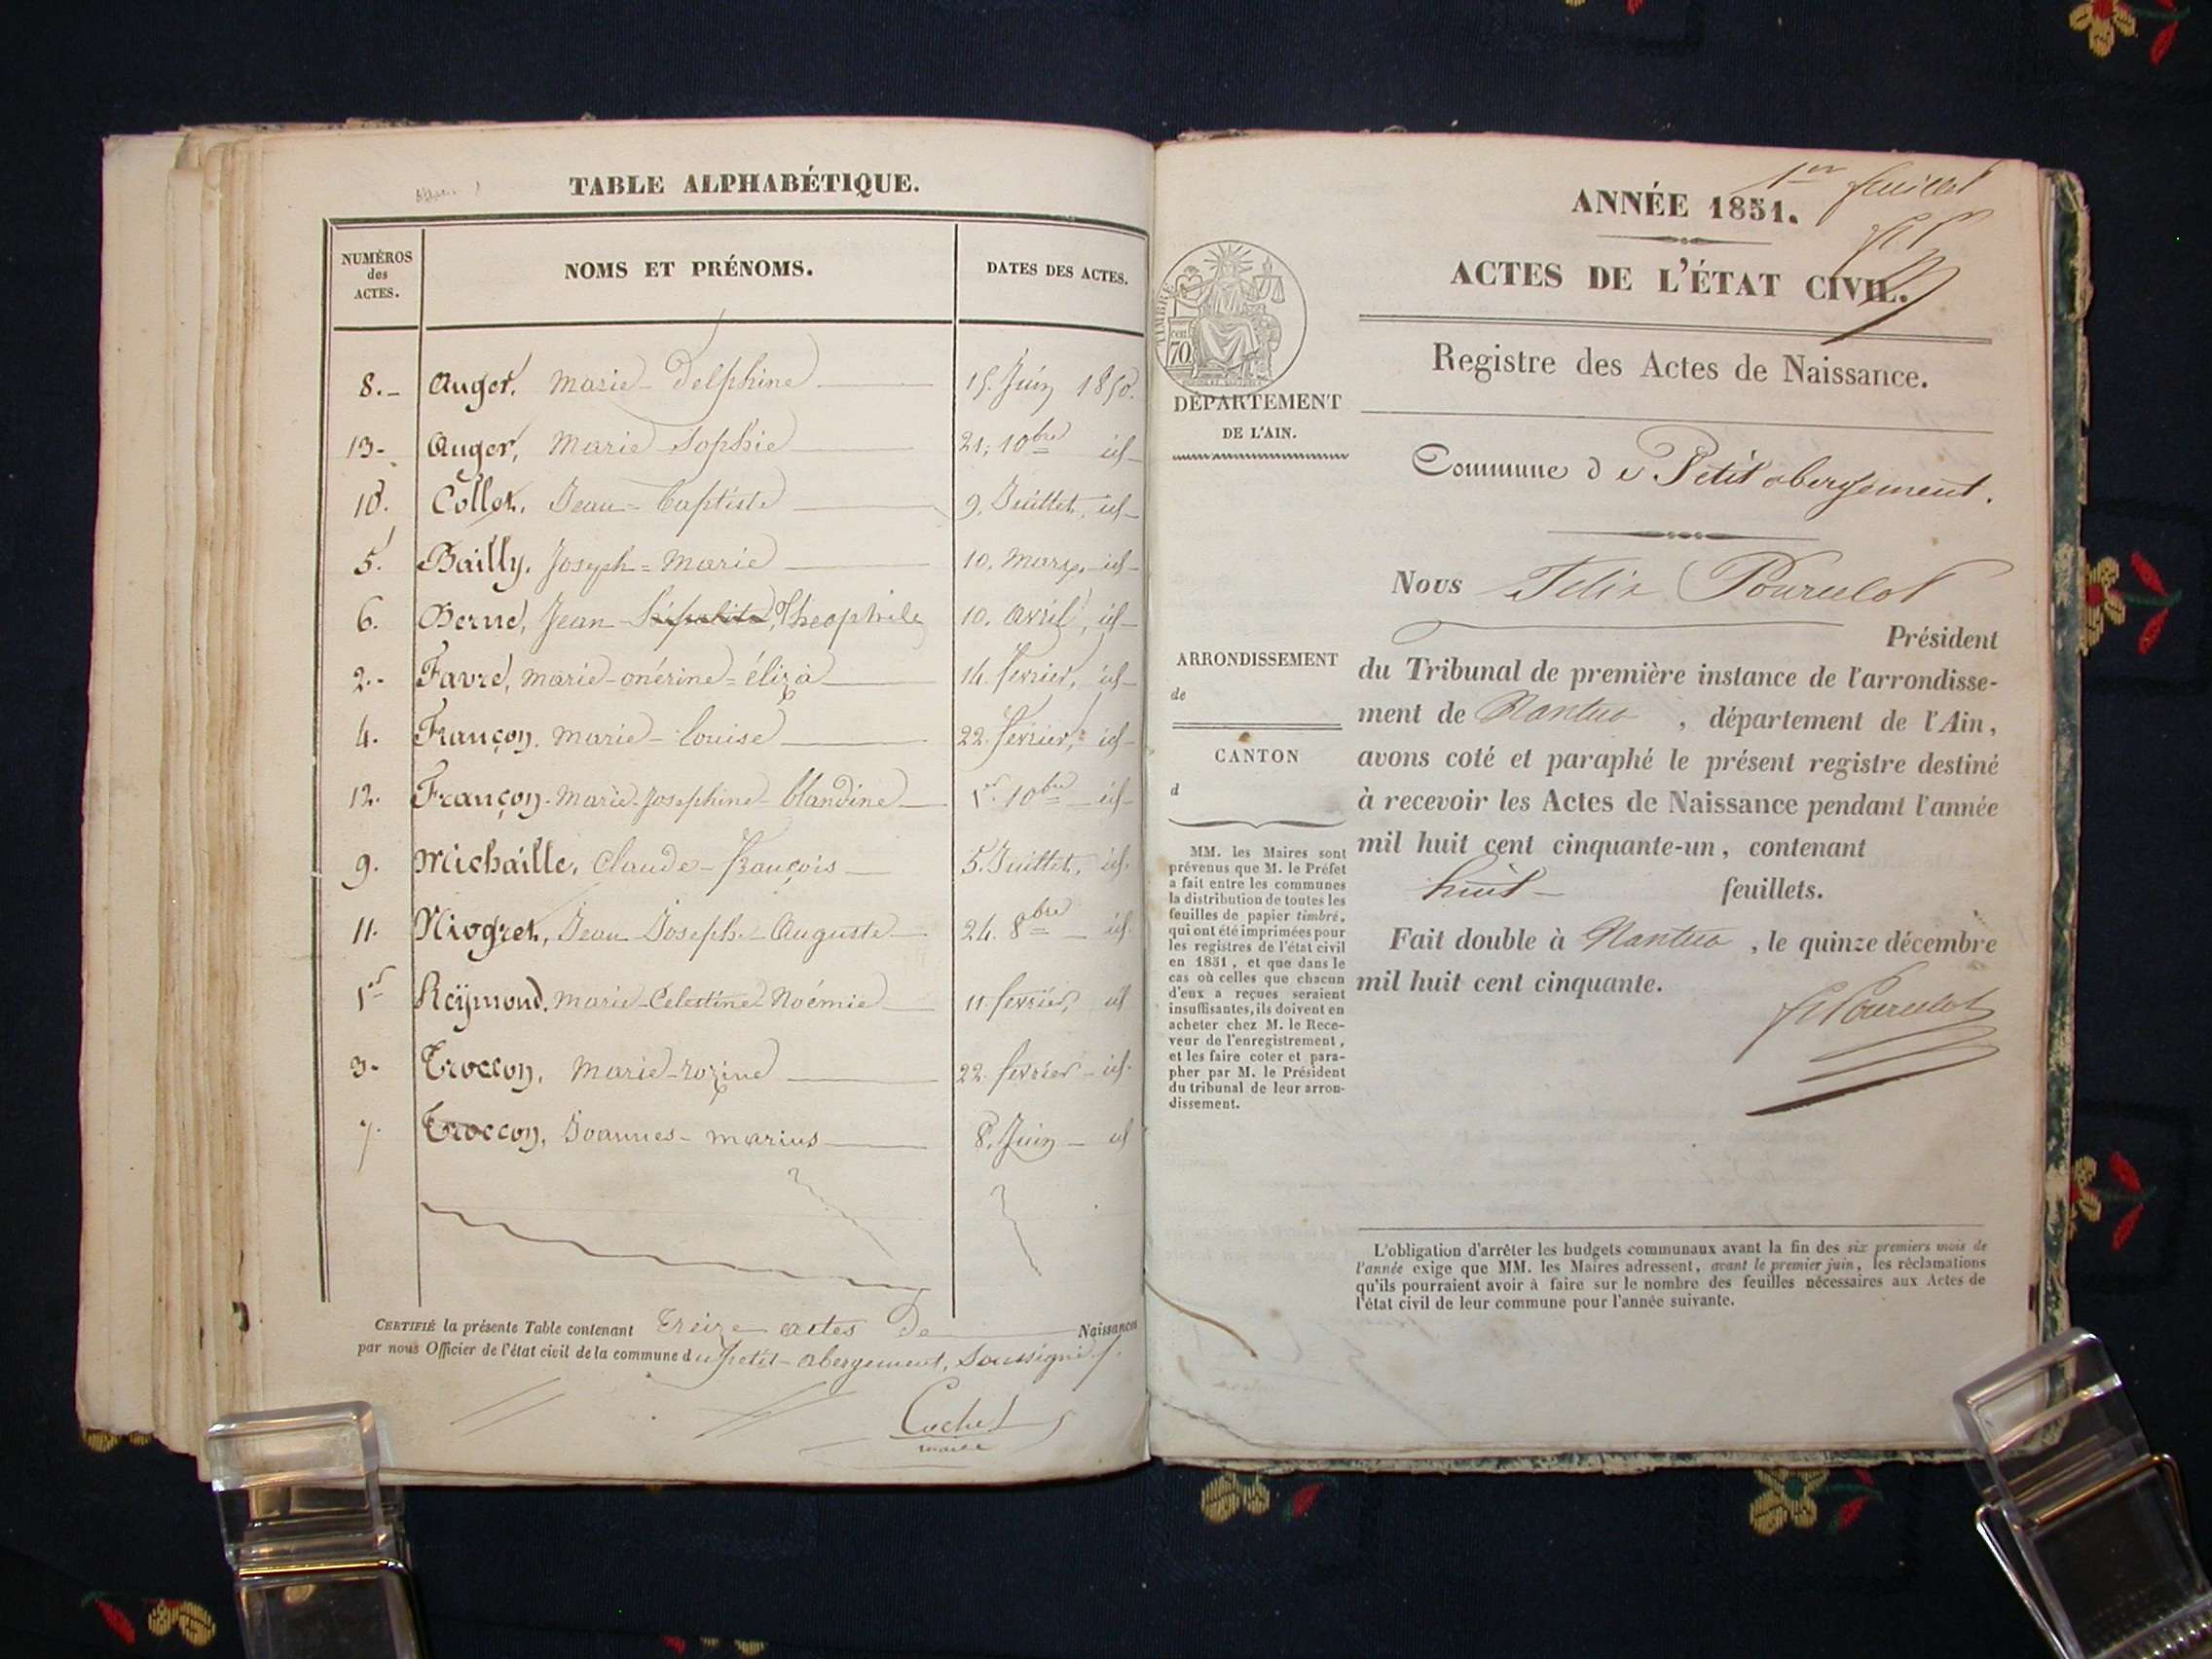 TABLE ALPHABÉTIQUE.
NUMÉROS des ACTES. NOMS ET PRÉNOMS. DATES DES ACTES.
8. Auger, Marie-Delphine 15. Juin 1850.
13 Auger, Marie Sophie 21, 10bre id
10. Collet, Jean-Baptiste 9. Juillet, id
5. Bailly, Joseph=Marie 10. Mars, id
6. Berne, Jean Théophile 10. avril, id
2. Favre, Marie-onérine=éliza 14. fevrier, id
4. Françon, Marie-Louise 22. fevrier, id
12. Françon. Marie-Josephine-blandine 1er 10bre id
9. Michaille, Claude-françois 5. Juillet, id.
11. Niogret, Jean Joseph-Auguste 24. 8bre id.
1er Reÿmond, Marie-Celestine-Noémie 11. fevrier, id
3. Troccon, Marie-rozine 22. fevrier id.
7. Troccon, Joannes-marius 8. Juin id
CERTIFIÉ la présente Table contenant treize actes de Naissances
par nous Officier de l'état civil de la commune du petit-abergement, Soussigné.
Cochet
maire
1er feuillet
ANNÉE 1851.
ACTES DE L'ÉTAT CIVIL.
Registre des Actes de Naissance.
TIMBRE
70
DÉPARTEMENT
DE L'AIN.
Commune de Petit abergement.
Nous Felix Pourcelot
Président
du Tribunal de première instance de l'arrondisse-
ment de Nantua, département de l'Ain,
avons coté et paraphé le présent registre destiné
à recevoir les Actes de Naissance pendant l'année
mil huit cent cinquante-un, contenant
huit feuillets.
Fait double à Nantua, le quinze décembre
mil huit cent cinquante.
F. Pourcelot
ARRONDISSEMENT
de
CANTON
d
MM. les Maires sont
prévenus que M. le Préfet
a fait entre les communes
la distribution de toutes les
feuilles de papier timbré,
qui ont été imprimées pour
les registres de l'état civil
en 1851, et que dans le
cas où celles que chacun
d'eux a reçues seraient
insuffisantes, ils doivent en
acheter chez M. le Rece-
veur de l'enregistrement,
et les faire coter et para-
pher par M. le Président
du tribunal de leur arron-
dissement.
L'obligation d'arrêter les budgets communaux avant la fin des six premiers mois de
l'année exige que MM. les Maires adressent, avant le premier juin, les réclamations
qu'ils pourraient avoir à faire sur le nombre des feuilles nécessaires aux Actes de
l'état civil de leur commune pour l'année suivante.